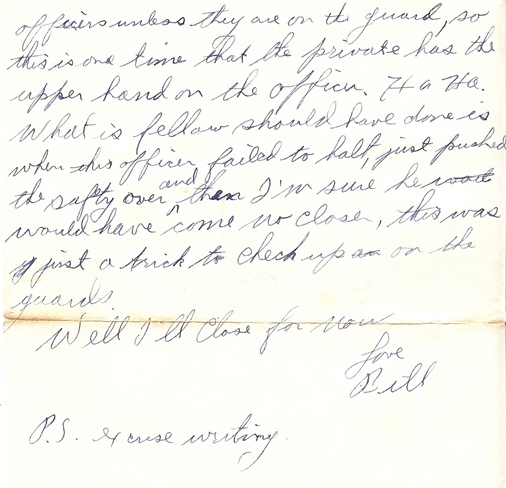 officers unless they are on the guard, so
this is one time that the private has the
upper hand on the officer. Ha Ha.
What is fellow should have done is
when this officer failed to halt, just pushed
the safty over and then I'm sure he
would have come no closer, this was
just a trick to check up on the
guards.
Well I'll Close for now
Love
Bill
P.S. excuse writing.